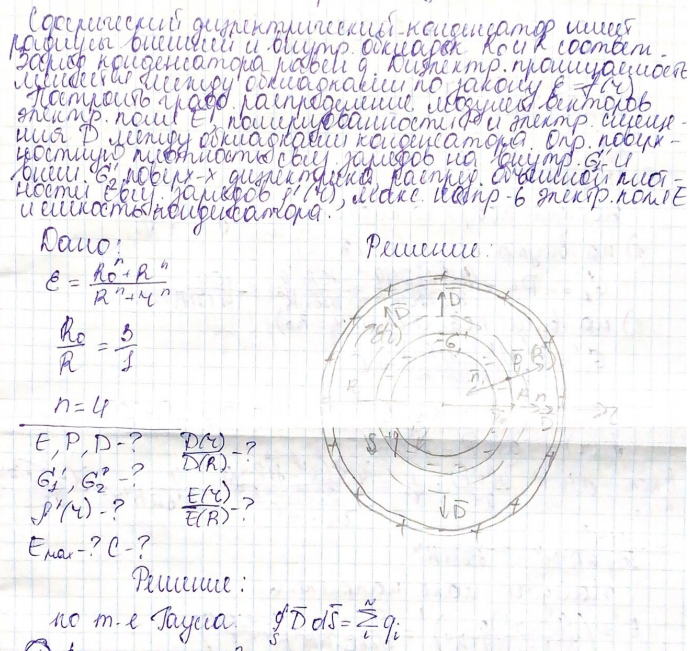 Сферический диэлектрический конденсатор имеет
радиусы внешней и внутр. обкладок R₀ и R соответ.
Заряд конденсатора равен q. Диэлектр. проницаемость
меняется между обкладками по закону ε = f(r).
Построить граф. распределение модулей векторов
электр. поля E, поляризованности P и электр. смеще-
ния D между обкладками конденсатора. Опр. поверх-
ностную плотность связ. зарядов на внутр. G₁' и
внеш. G₂' поверх-х диэлектрика, распред. объемной плот-
ности связ. зарядов ρ'(r), макс. напр-ть электр. поля E
и емкость конденсатора.
Дано: Решение:
ε = (R₀ⁿ + Rⁿ)/(Rⁿ + rⁿ)
R₀/R = 3/1
n = 4
E, P, D - ? D(r)/D(R) - ?
G₁', G₂' - ? E(r)/E(R) - ?
ρ'(r) - ?
Eмах - ? C - ?
D̄ D̄
-G'
n̄
R n̄
S
D̄
Решение:
по т-е Гаусса: ∮ D̄ dS̄ = Σ qᵢ
S i N